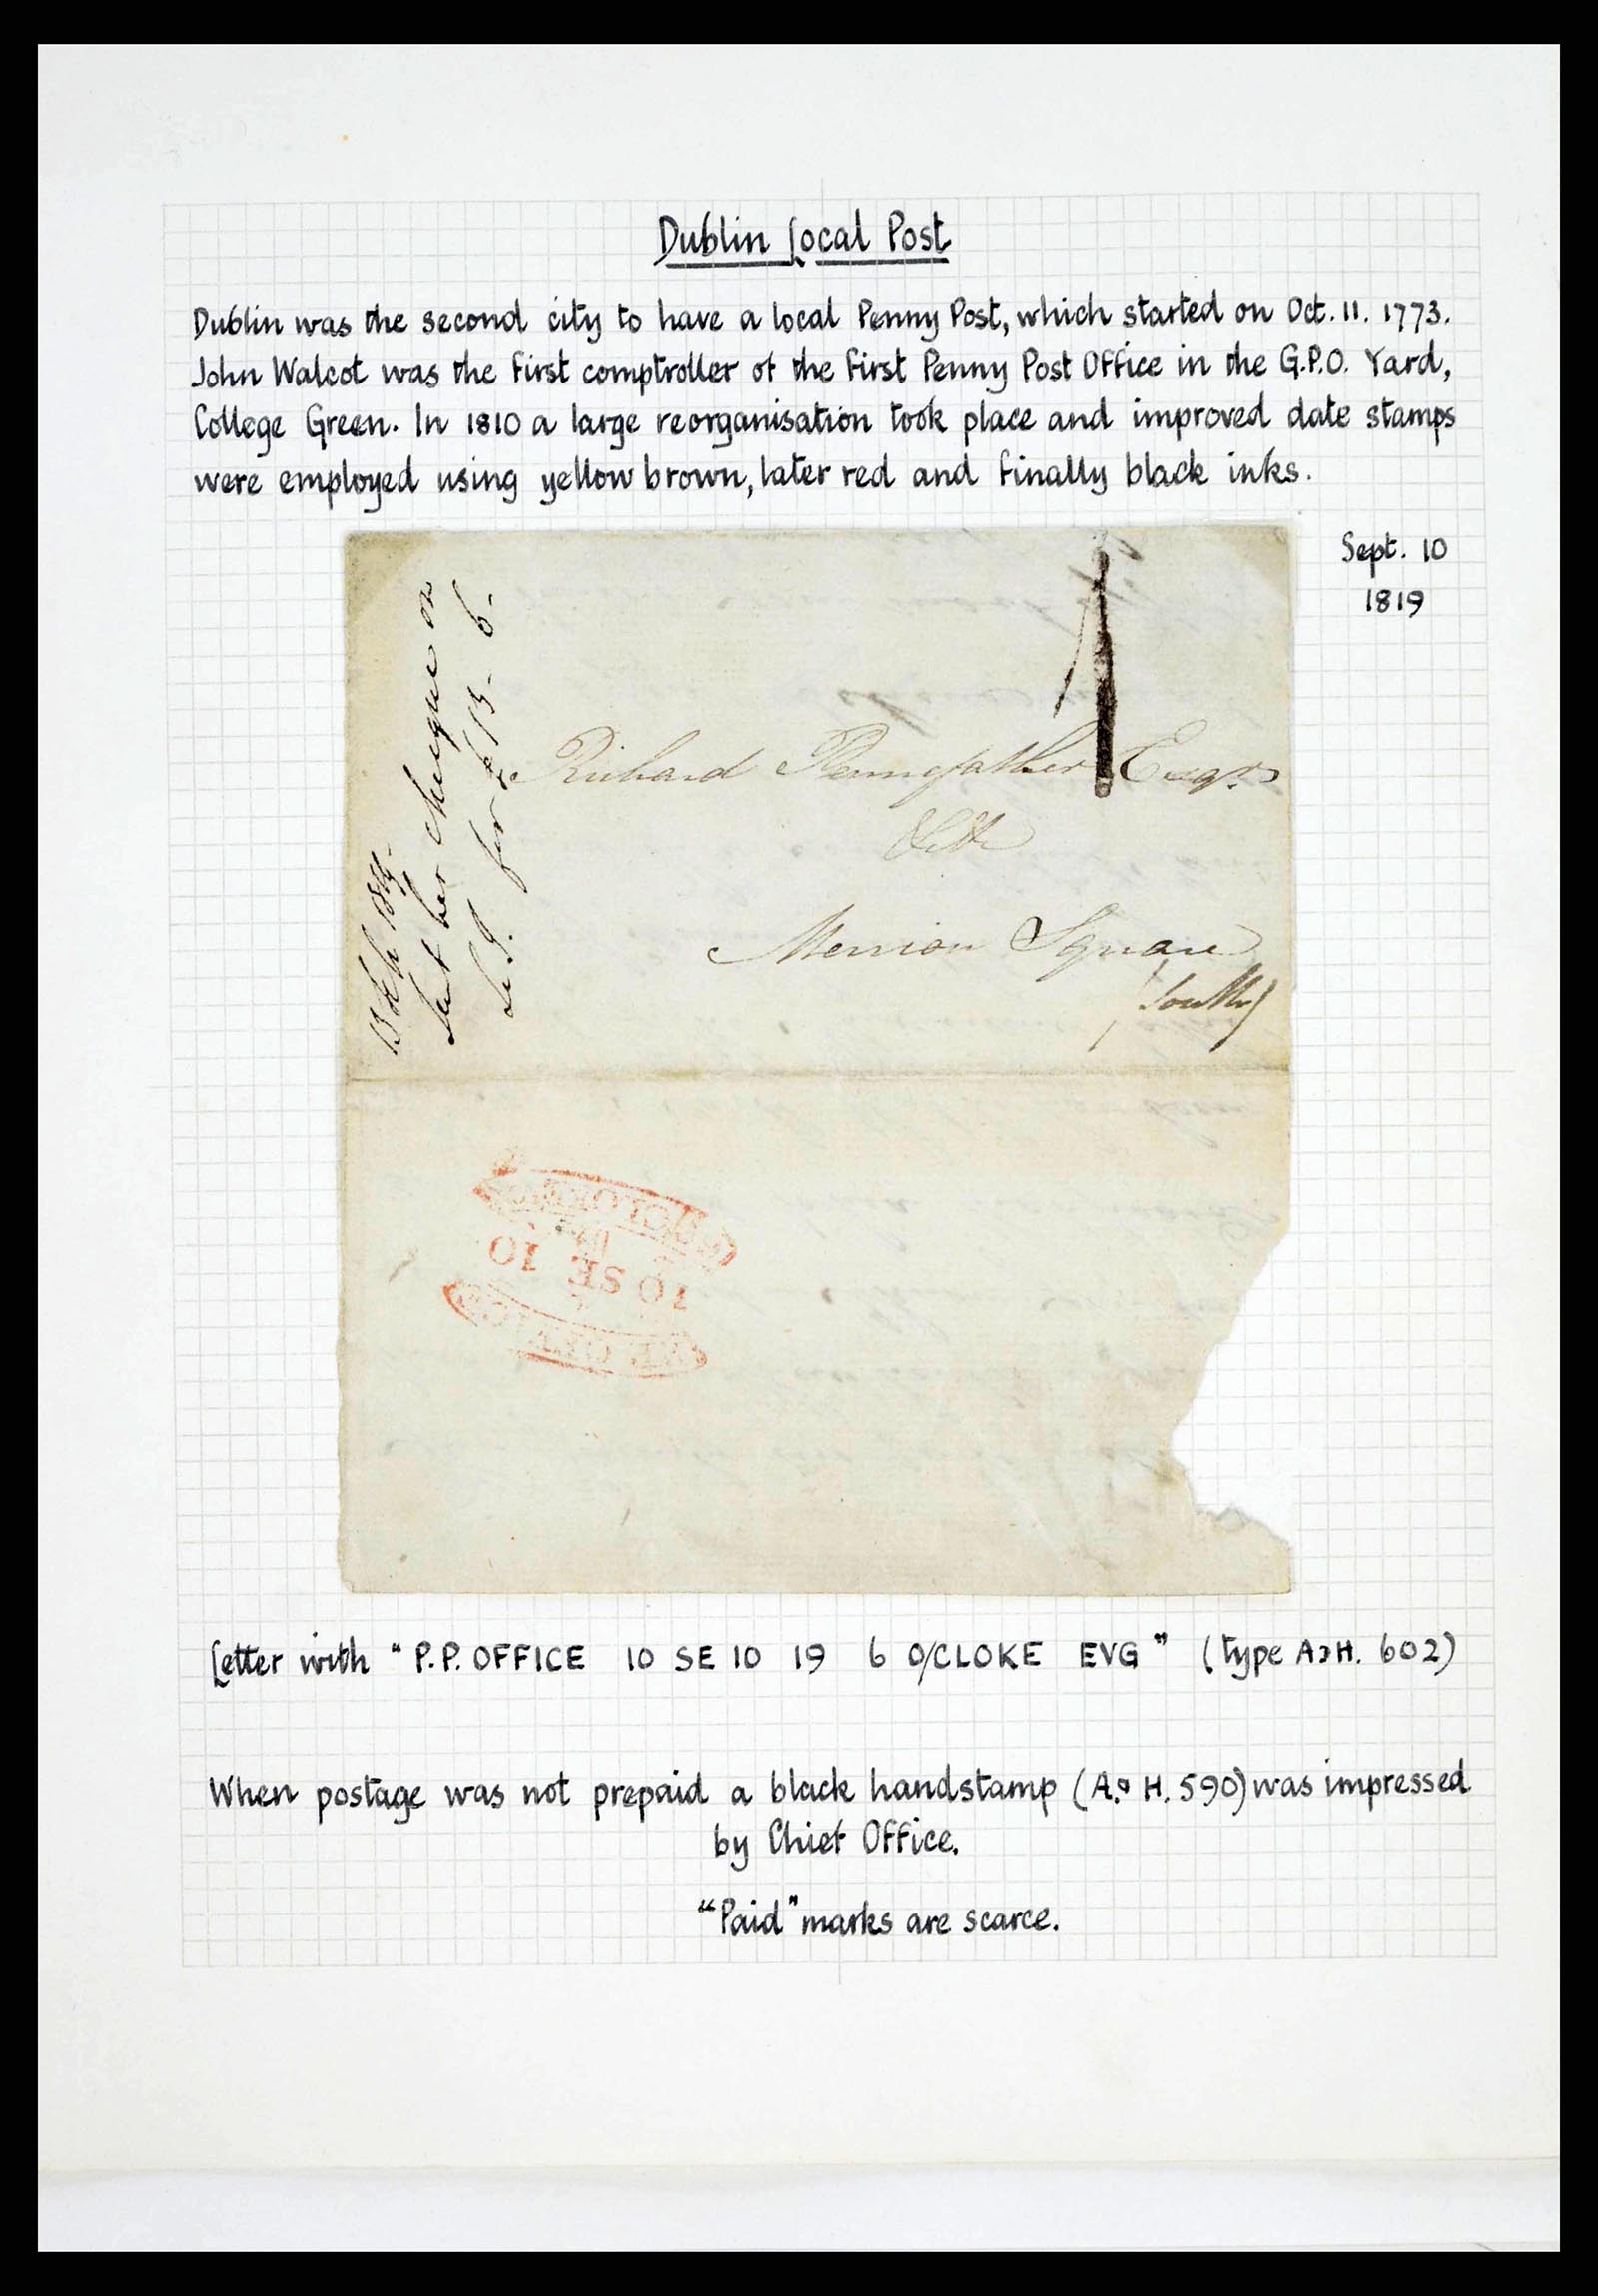 Dublin Local Post
Dublin was the second city to have a local Penny Post, which started on Oct. 11. 1773.
John Walcot was the first comptroller of the first Penny Post Office in the G.P.O. Yard,
College Green. In 1810 a large reorganisation took place and improved date stamps
were employed using yellow brown, later red and finally black inks.
Sept. 10
1819
1
Richard Pennefather Esqr.
Merrion Square
(South)
sent her cheque on
for £13- 6-
10 SE 10
Letter with "P.P. OFFICE 10 SE 10 19 6 O/CLOKE EVG" (type A&H. 602)
When postage was not prepaid a black handstamp (A.& H. 590) was impressed
by Chief Office.
"Paid" marks are scarce.